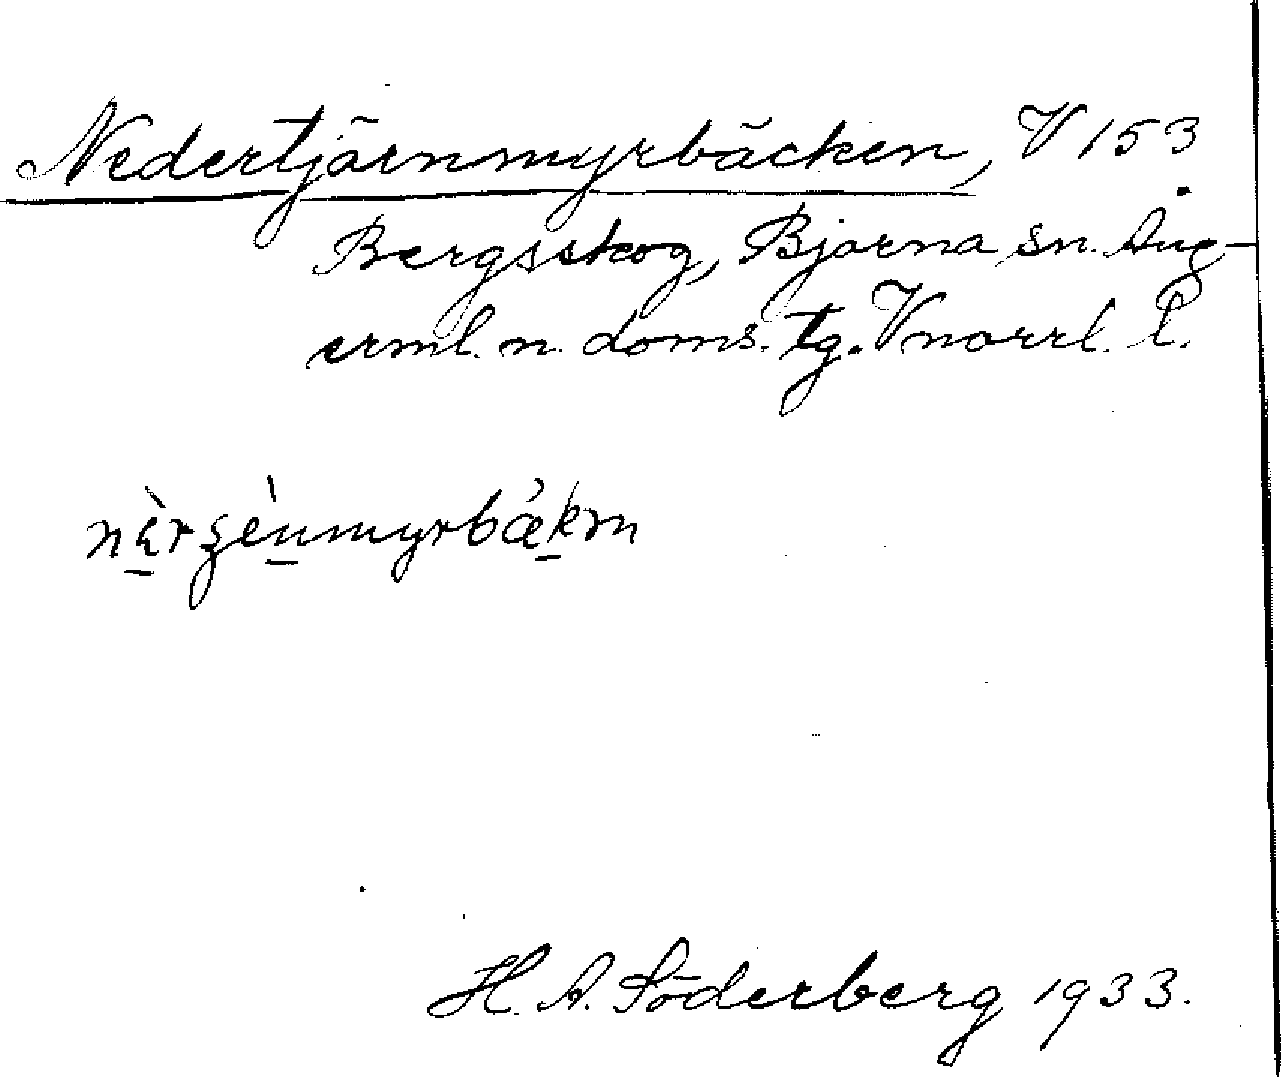 Nedertjärnmyrbäcken, V 153
Bergsskog, Björna sn. Ång-
erml. n. doms. tg. Vnorrl. l.
nèrʂènmyrbækm
H. A. Söderberg 1933.